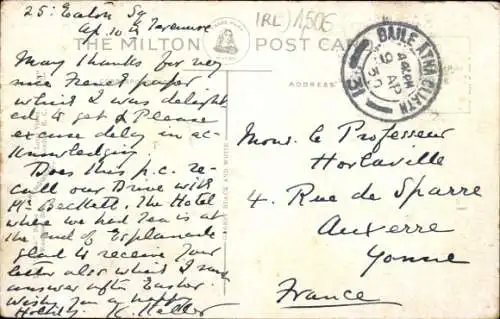 25: Eaton Sq
Ap. 10 Terenure
(IRL) 1,506
THE MILTON POST CARD
ADDRESS
BAILE ÁTHA CLIATH
19 AP
30
31
Many thanks for very
nice French paper
which I was delight
ed to get & Please
excuse delay in ac-
knowledging
Does this p.c. re-
call our Drive with
Mr Beckett. The Hotel
where we had Tea is at
the end of Esplanade
glad to receive your
letter also which I may
answer after Easter.
Wish you a happy
Holiday
Mons. le Professeur
Horlaville
4. Rue de Sparre
Auxerre
Yonne
France